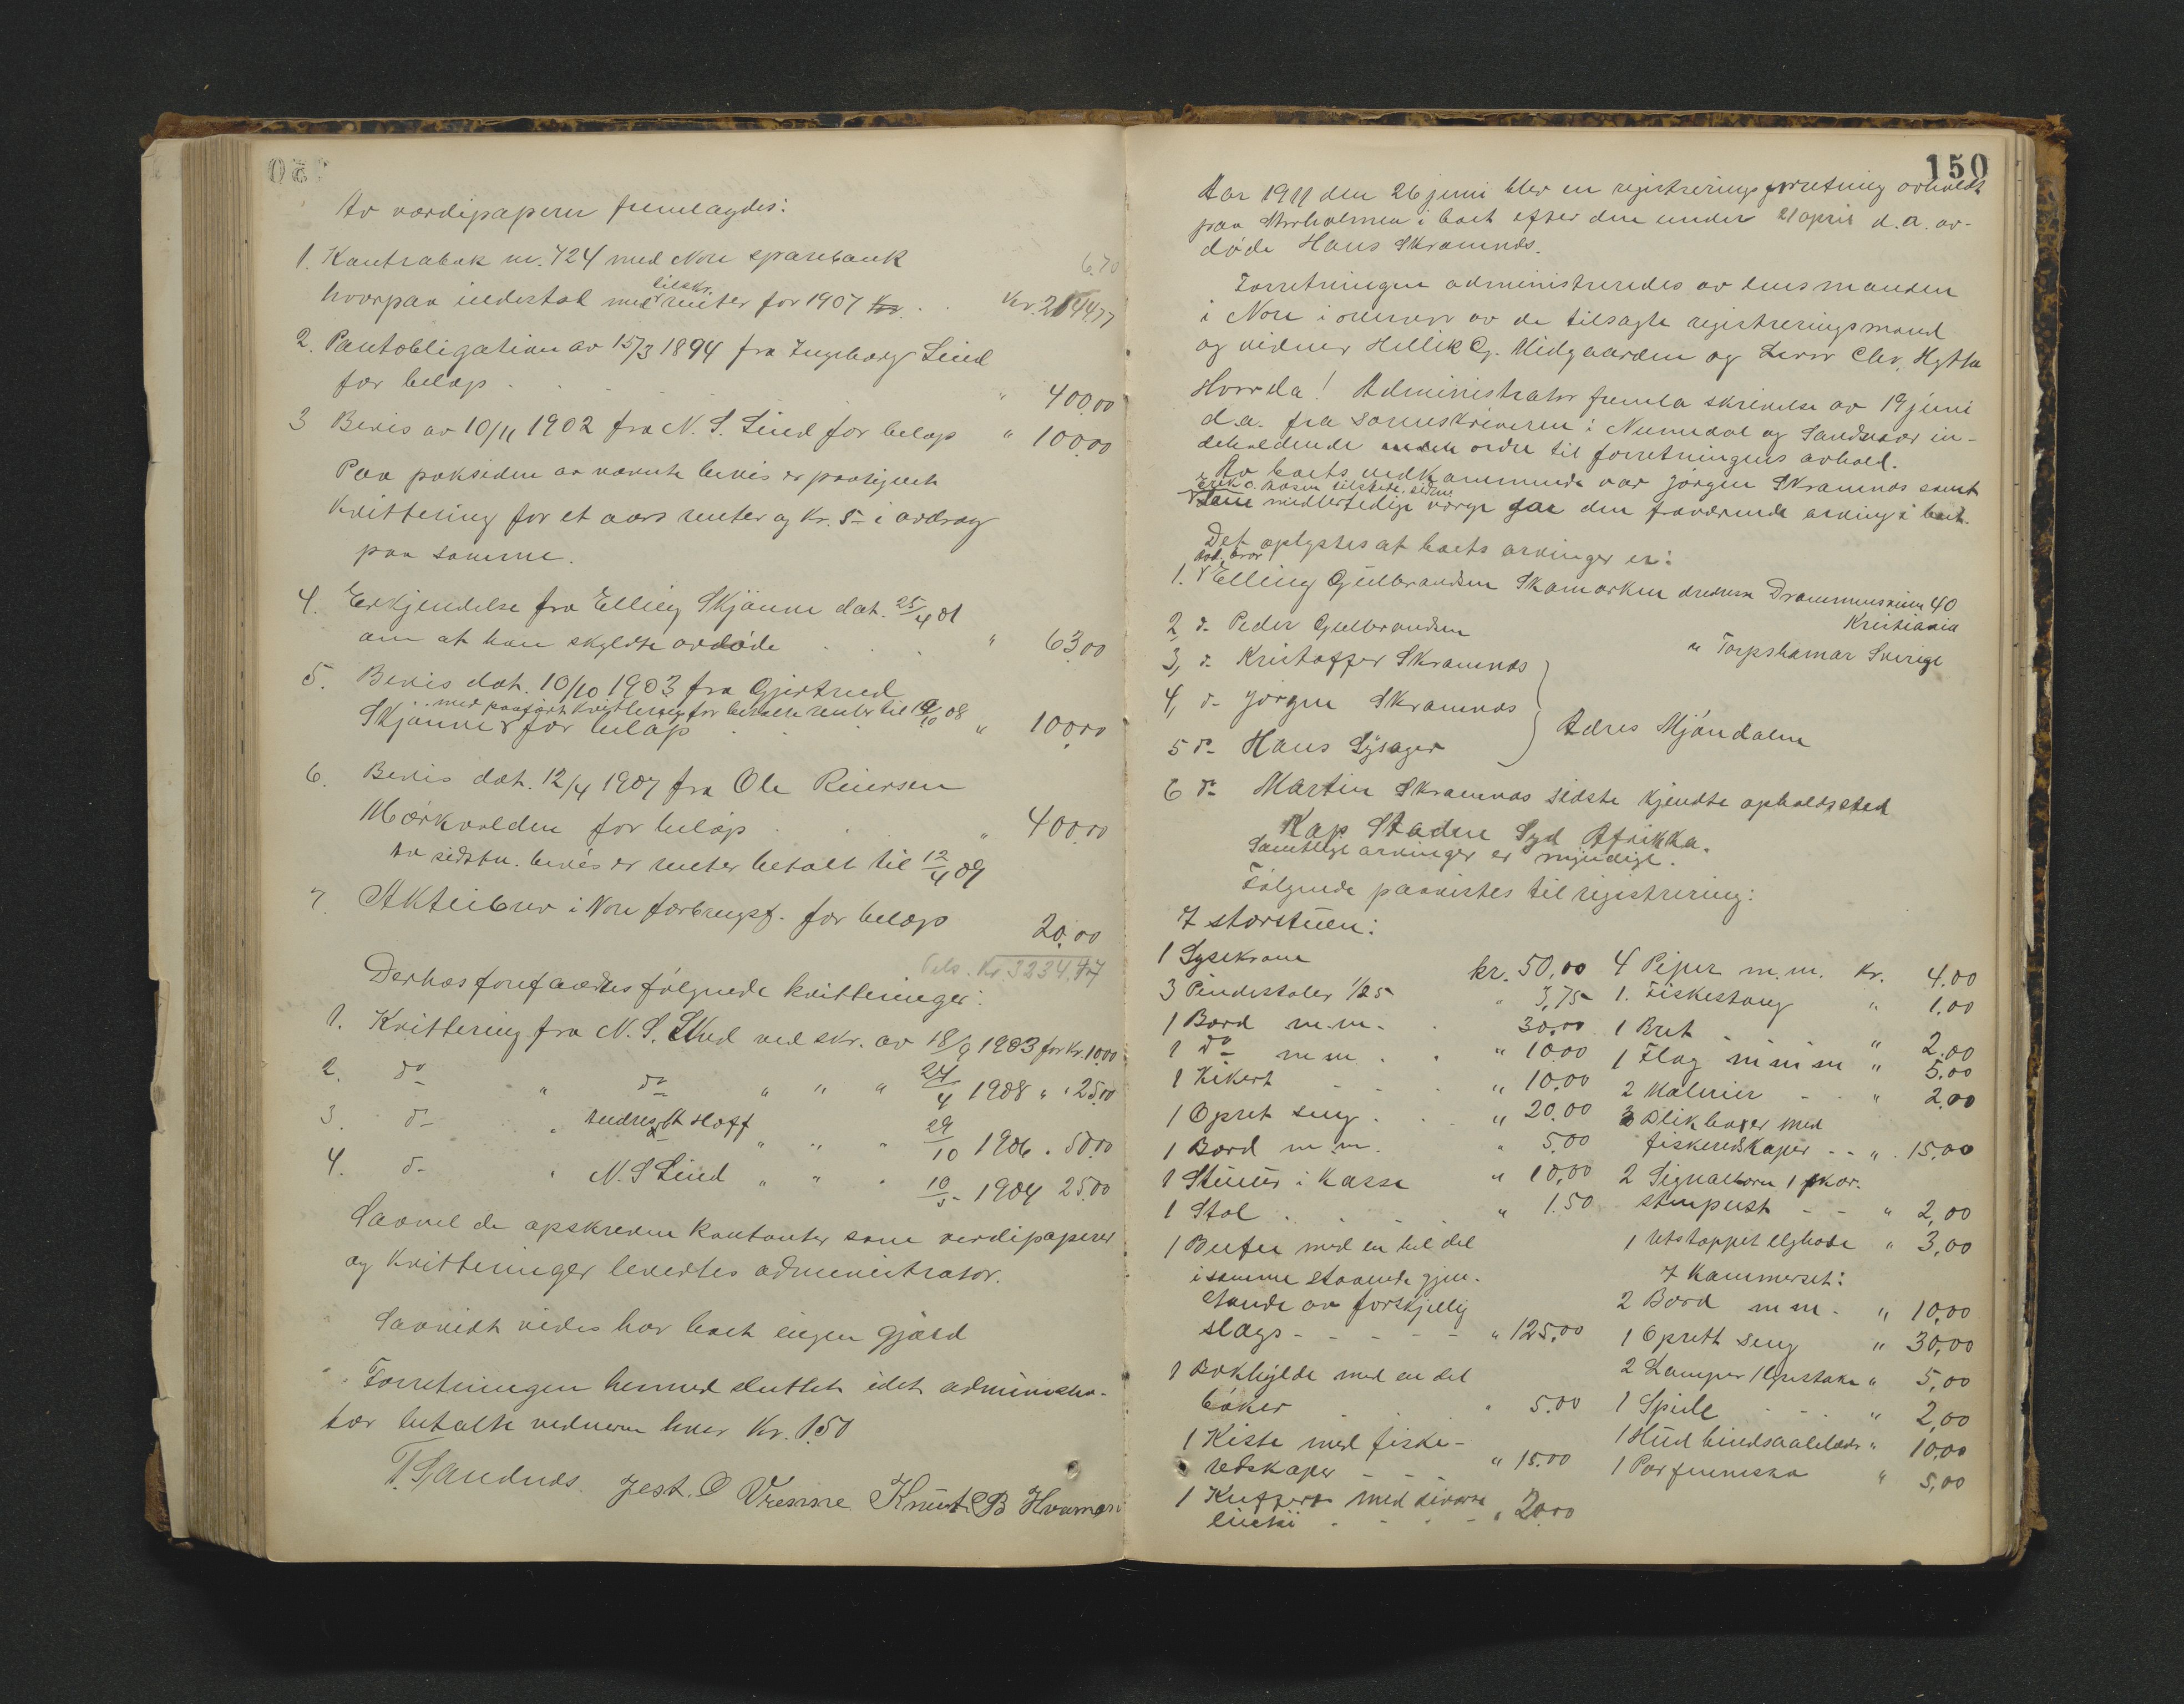 Av værdipaperer fremlagdes:
1. Kontrabok nr. 424 med Nore sparebank
6.70
hvorpaa indestod med tilskr. renter for 1907 Kr. 2144.77
2. Pantobligation av 15/3 1894 fra Ingeborg Lind
for beløp " 400.00
3 Bevis av 10/11 1902 fra N. S. Lind for beløp " 100.00
Paa baksiden av nævnte bevis er paategnet
kvittering for et aars renter og Kr. 5 - i avdrag
paa samme.
4. Erkjendelse fra Elling Skjønne dat. 25/4 01
om at han skyldte avdøde " 63.00
5. Bevis dat. 10/10 1903 fra Gjertrud
med paaført kvittering for betalte renter til 19/10 08
Skjønne for beløp " 100.00
6. Bevis dat. 12/4 1907 fra Ole Reiersen
Mørkvolden for beløp " 400.00
Av sidstn. bevis er renter betalt til 12/4 09
7. Aktiebrev i Nore forbrugsf. for beløp 20.00
Tils. Kr. 3234.77
Derhos forefandtes følgende kvitteringer:
1. Kvittering fra N. S. Lind ved skr. av 18/9 1903 for Kr. 10.00
2. do " do " " " 24/4 1908 " " 25.00
3. do " Andreas Hoff " " " 29/10 1906 " 50.00
4. do " N. S Lind " " " 10/5 - 1904 25.00
Saavel de opskrevne kontanter som verdipaperer
og kvitteringer levertes administrator.
Saavidt vides har boet ingen gjæld
Forretningen hermed sluttet idet administra-
tor betalte vidnerne hver Kr. 1.50
T. Sandnes. Jest. O Vrenne Knut B Hvammen
150
Aar 1911 den 26 juni blev en registreringsforretning avholdt
paa Morholmen i boet efter den under 21 april d.a. av-
døde Hans Skramnæs.
Forretningen administreredes av lensmanden
i Nore i overvær av de tilsagte registreringsmænd
og vidner Hellik G. Midgaarden og Levor Clev, Hytta
Hvorda! Administrator fremla skrivelse av 19 juni
d.a. fra sorenskriveren i Numedal og Sandsvær in-
deholdende ordre til forretningens avhold.
Av boets vedkommende var Jørgen Skramnæs samt
Erik O. Aasen tilstede, sidste
som midlertidig værge for den fraværende arving i boet.
Det oplystes at boets arvinger er:
avd. bror
1. Elling Gulbrandsen Skamarken adresse Drammensveien 40
Kristiania
2, d. Peder Gulbrandsen " Torpshamar Sverige
3, d. Kristoffer Skramnæs
4, d. Jørgen Skramnæs
Adres Mjøndalen
5 d. Hans Lysager
6 d. Martin Skramnæs sidste kjendte opholdssted
Kap Staden Syd Afrikka.
Samtlige arvinger er myndige.
Følgende paavistes til registrering:
I storstuen:
1 Lysekrone kr. 50,00
3 Pindestoler 1/25 " 3,75
1 Bord m.m. 30,00
1 do m m " 10.00
1 Kikert " 10.00
1 Opret seng " 20.00
1 Bord m.m. " 5.00
1 Stueur i Kasse " 10,00
1 Stol " 1.50
1 Bufee med en hel del
i samme staaende gjen-
stande av forskjellig
slags " 125,00
1 Bokhylde med en del
bøker " 5.00
1 Kiste med fiske-
redskaper " 15.00
1 Kuffert med diverse
indhi " 20.00
4 Piper m.m. Kr. 4.00
1. Fiskestang " 1.00
1 Bret " 2.00
1 Flag m m m " 5.00
2 Malerier " 2.00
3 Blikboxer med
fiskeredskaper " 15.00
2 Signalhorn 1 skor-
stenpust " 2,00
1 Utstoppet elghode " 3,00
I Kammerset:
2 Bord m m " 10,00
1 Oprett seng " 30,00
2 Lamper 1 lysestake " 5,00
1 Speile " 2,00
1 Hud bindsaalelæder " 10,00
1 Par finnesko " 5,00